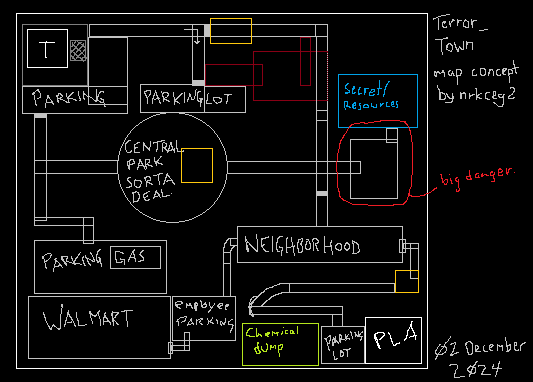 Terror_
Town
map concept
by nrkceg2
T
PARKING
PARKING LOT
Secret/
Resources
CENTRAL
PARK
SORTA
DEAL
big danger.
NEIGHBORHOOD
PARKING
GAS
WALMART
employee
PARKING
Chemical
dump
PARKING
LOT
PLA
02 December
2024